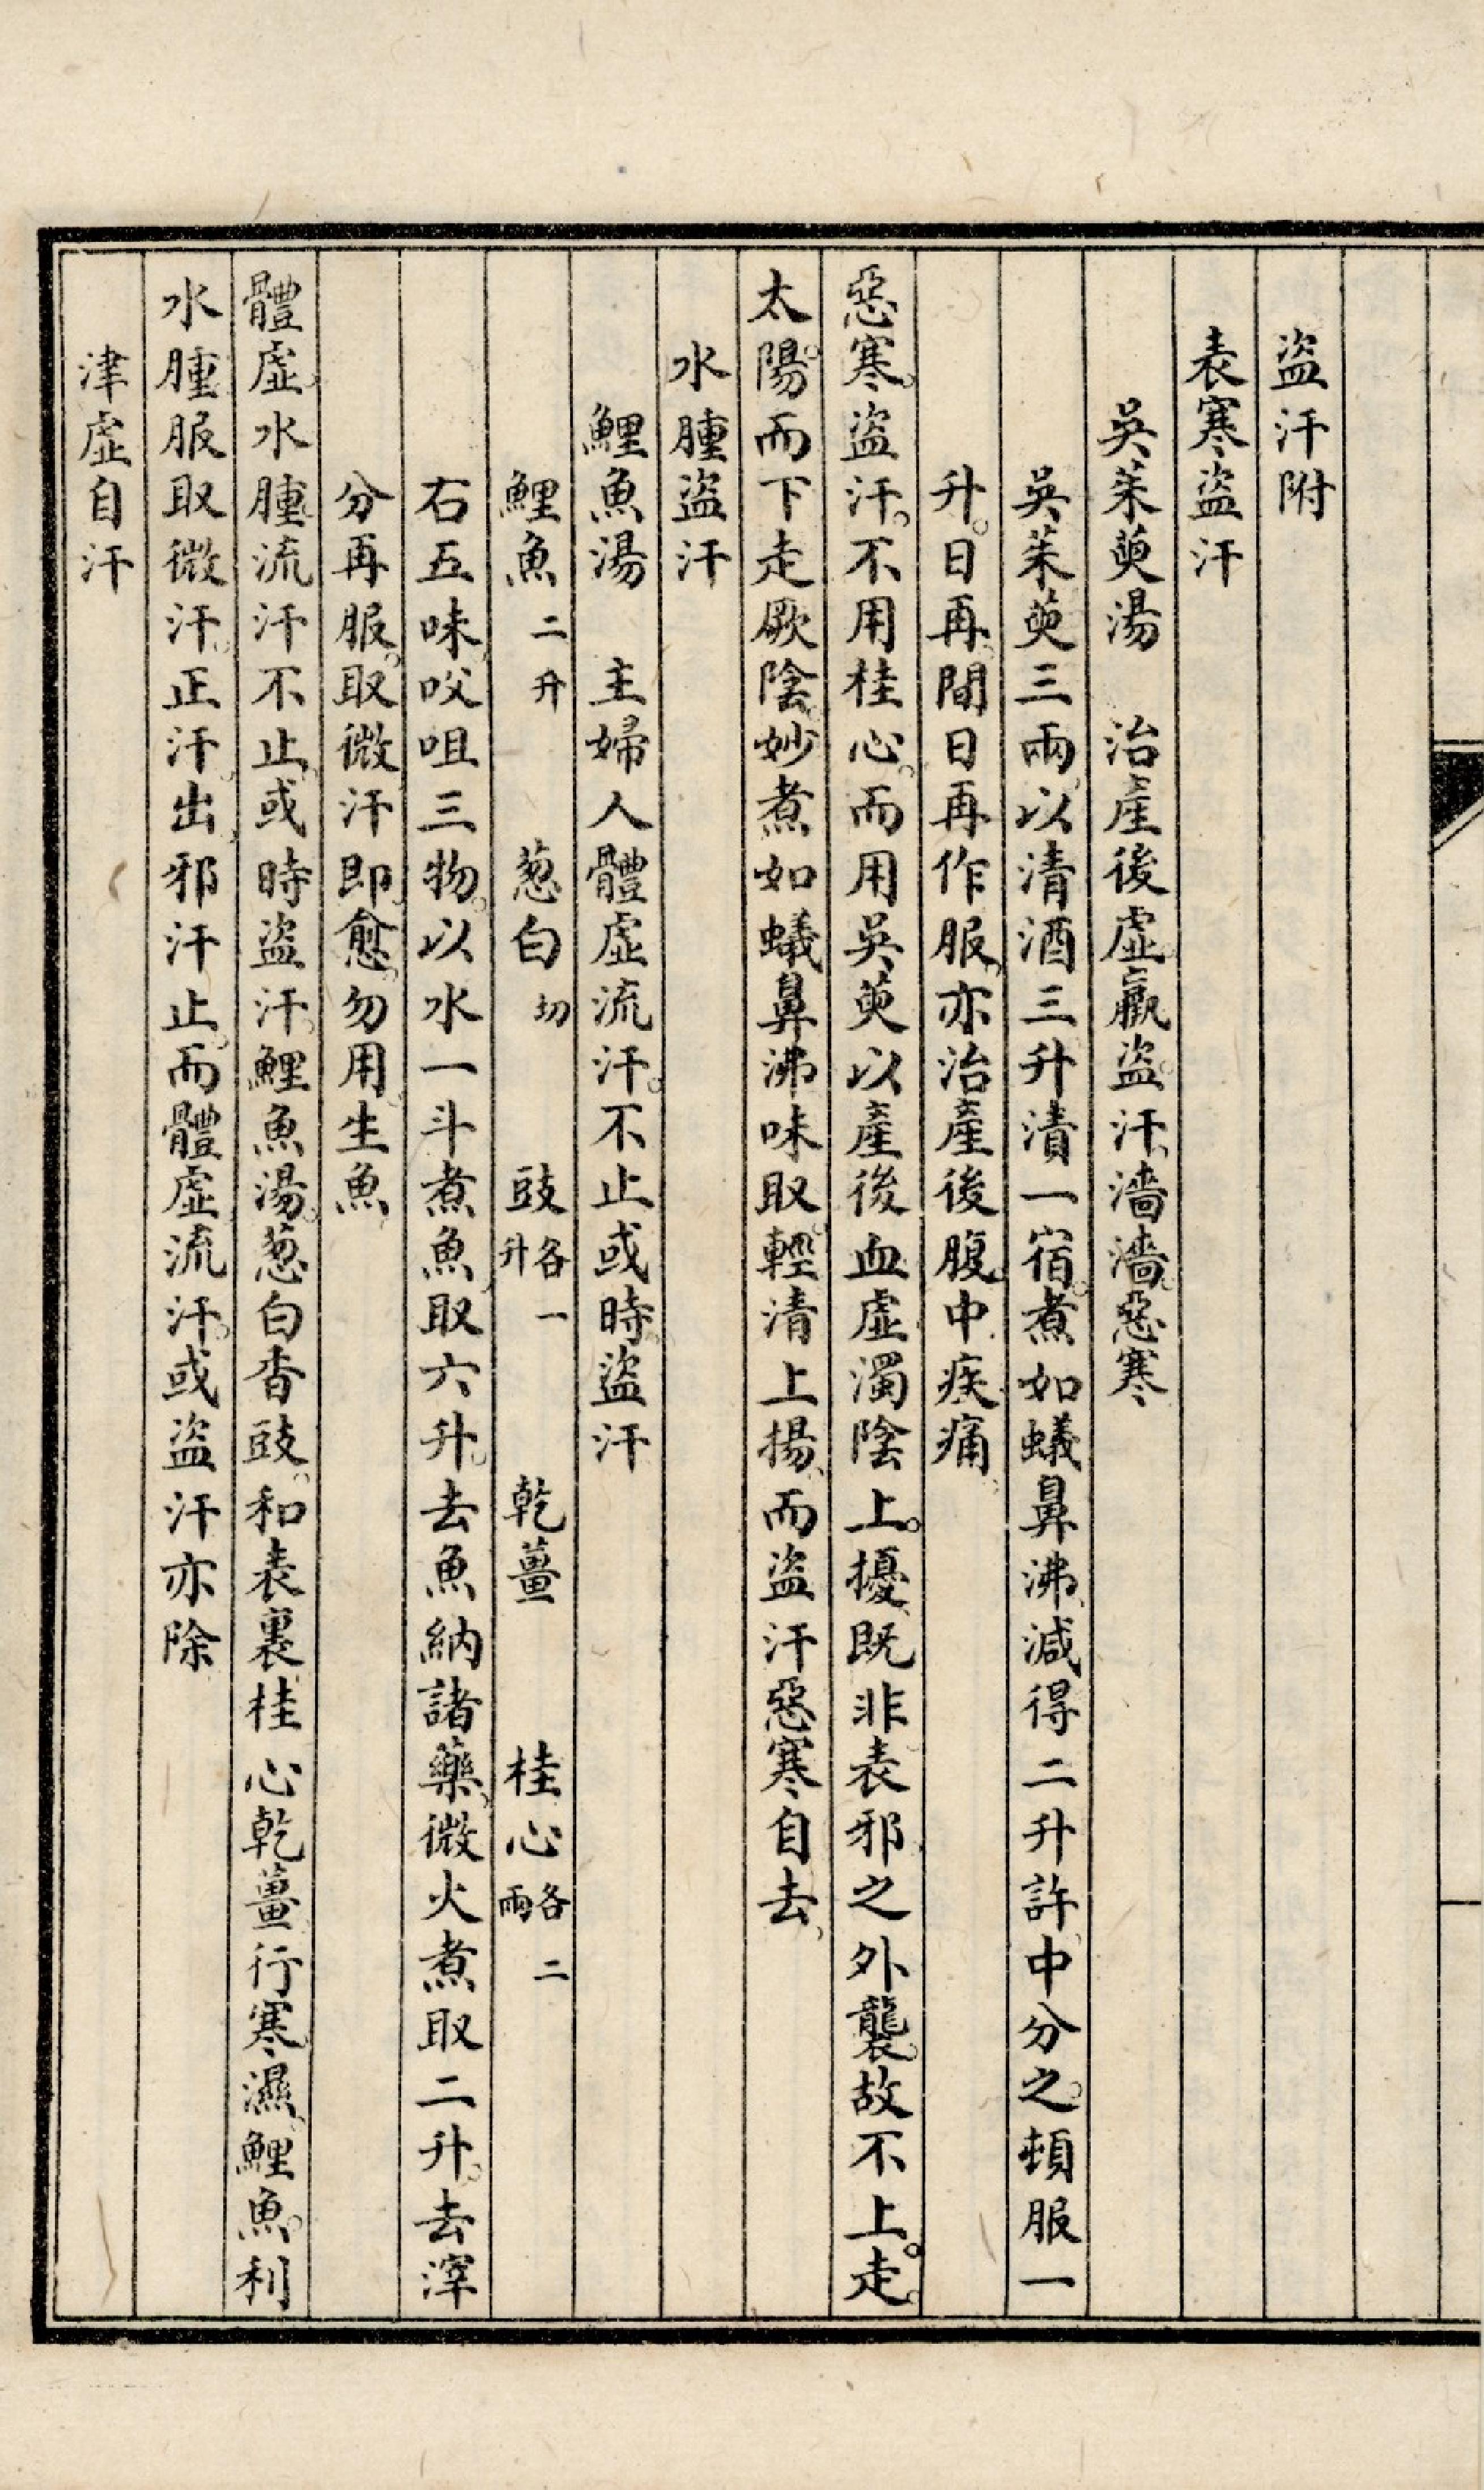 盜汗附
表寒盜汗
吳茱萸湯　治產後虛羸盜汗、濇濇惡寒
吳茱萸三兩、以清酒三升漬一宿。煮如蟻鼻沸、減得二升許、中分之。頓服一
升。日再、間日再作服、亦治產後腹中疾痛、
惡寒。盜汗。不用桂心。而用吳萸以產後血虛濁陰上。擾、既非表邪之外襲。故不上。走。
太陽。而下走厥陰。妙煮如蟻鼻沸味取輕清上揚、而盜汗惡寒自去、
水腫盜汗
鯉魚湯　主婦人體虛流汗。不止或時盜汗
鯉魚二升　葱白切　豉各一升　乾薑　桂心各二兩
右五味、㕮咀三物。以水一斗煮魚、取六升。去魚納諸藥、微火煮取二升。去滓
分再服。取微汗即愈、勿用生魚
體虛、水腫流汗不止、或時盜汗。鯉魚湯。葱白香豉。和表裏、桂心乾薑行寒濕、鯉魚。利
水腫服取微汗。正汗出、邪汗止。而體虛流汗。或盜汗亦除
津虛自汗